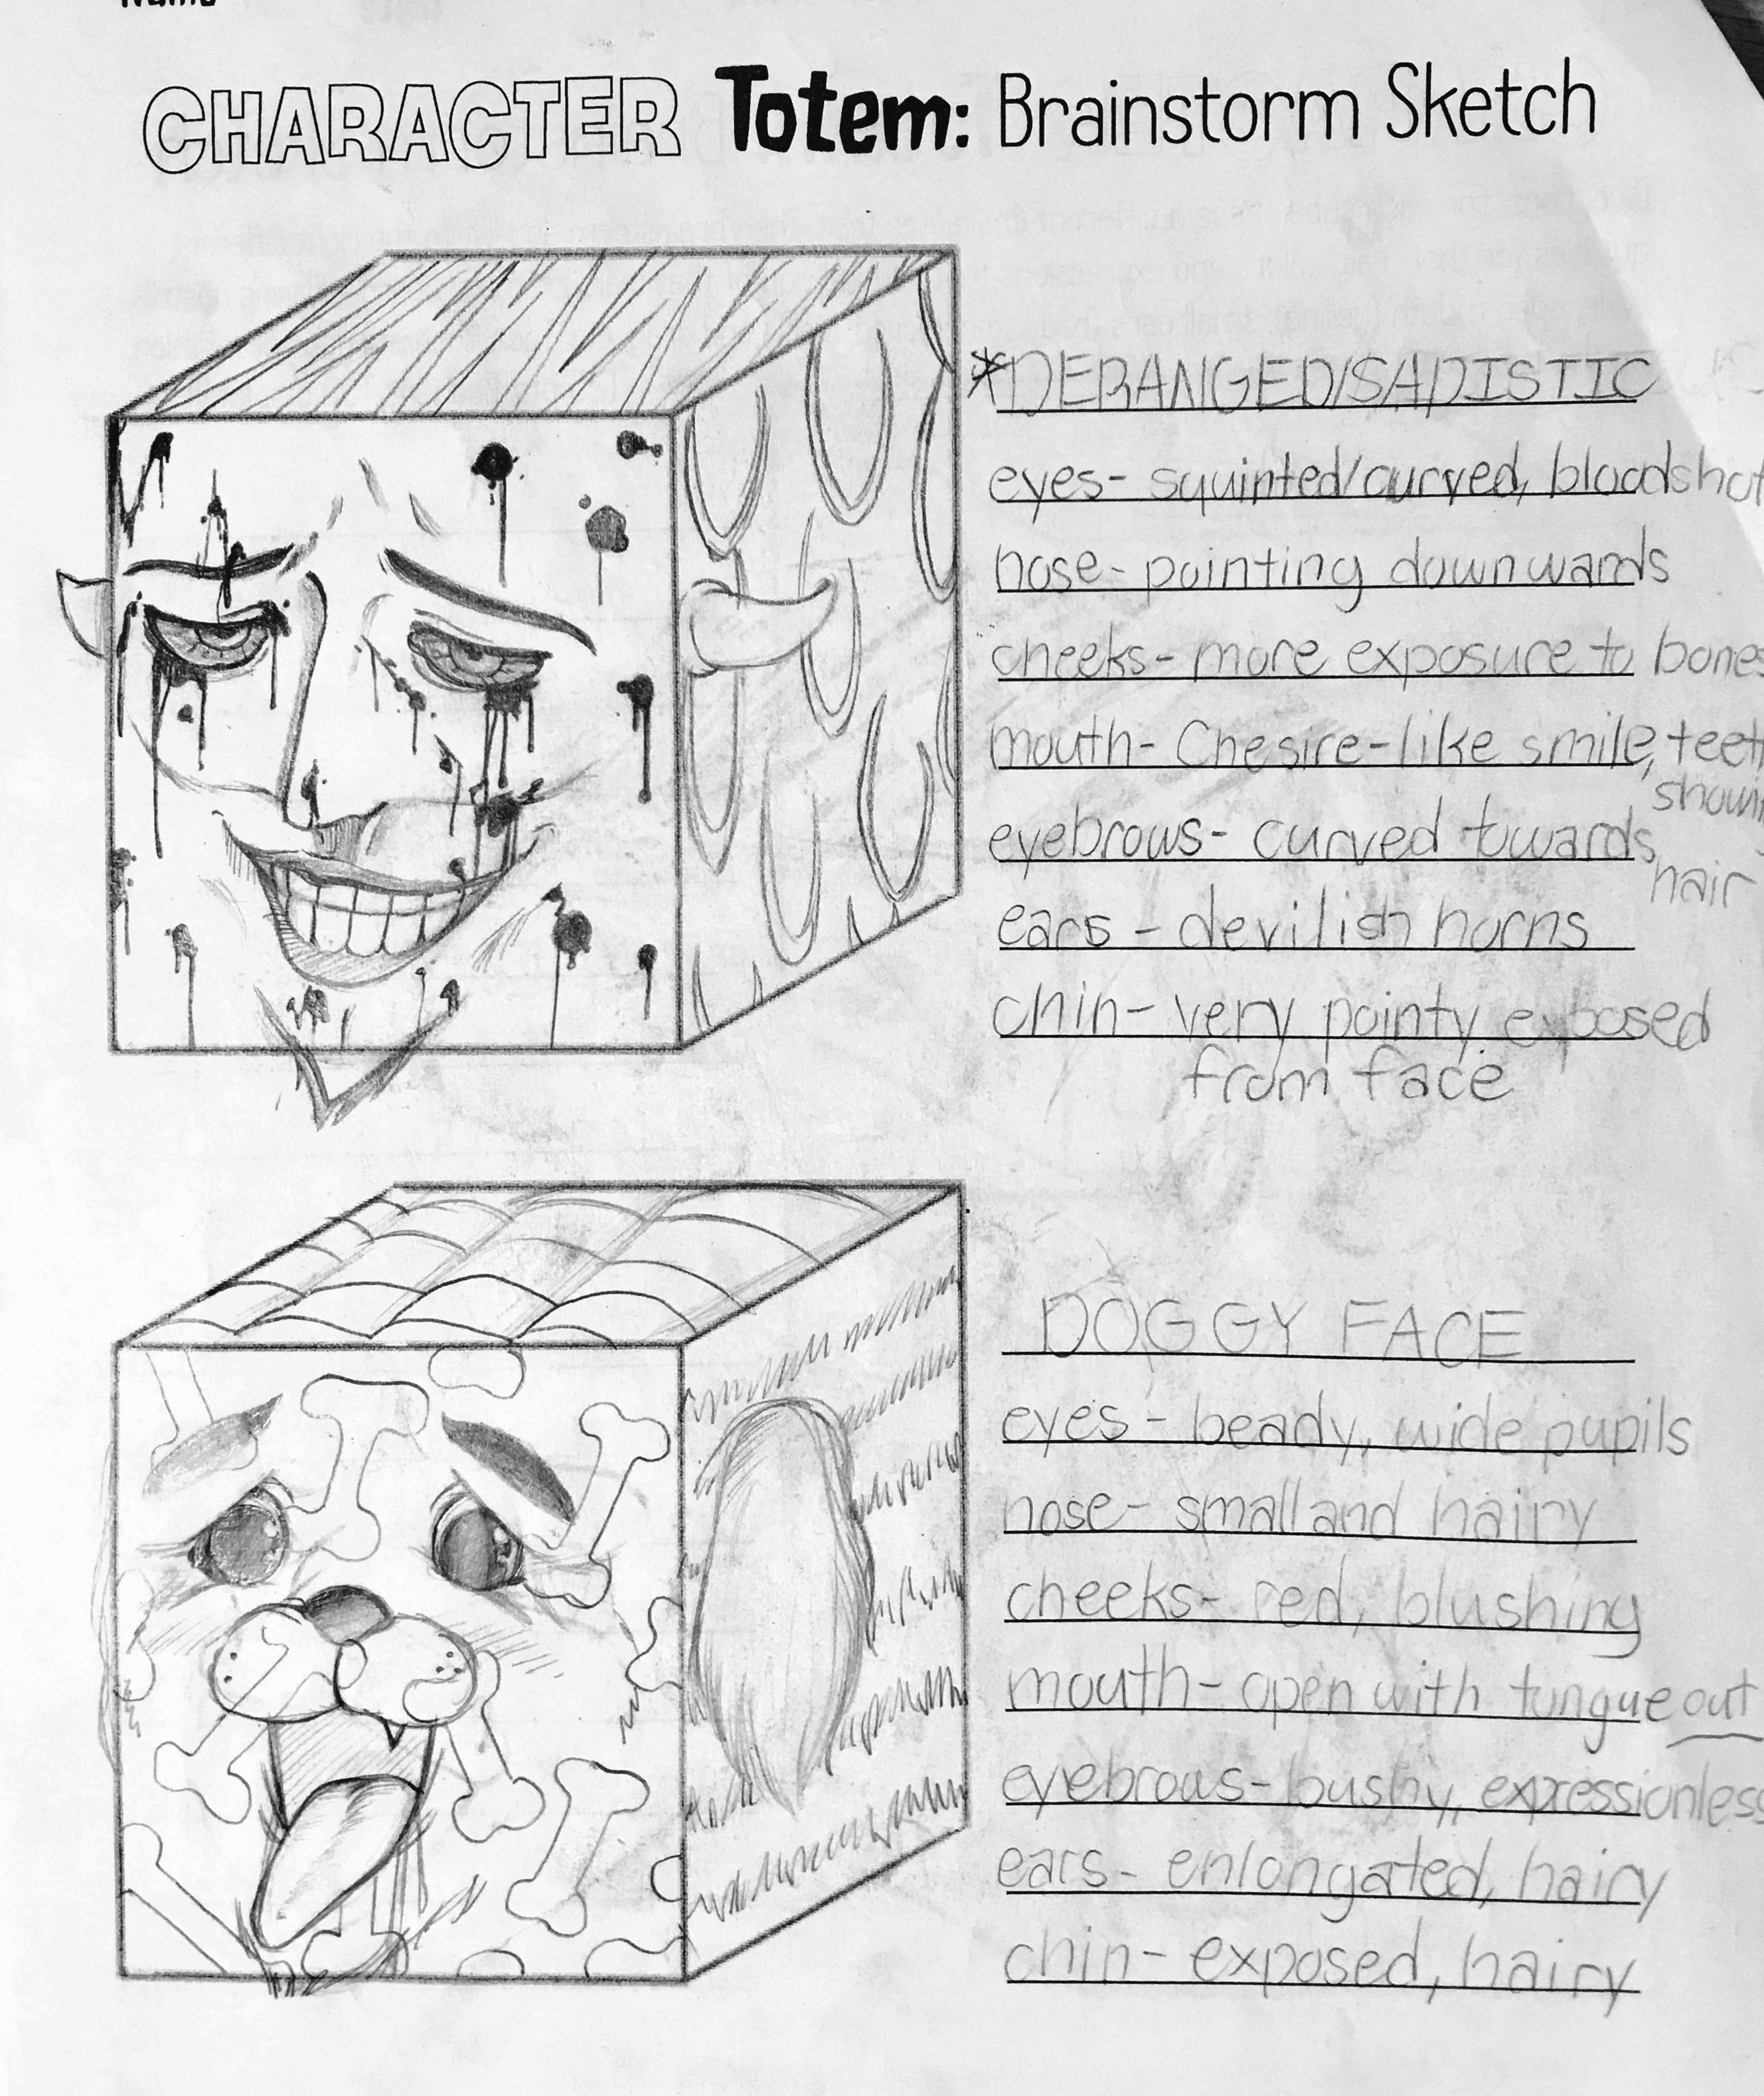 Name
CHARACTER Totem: Brainstorm Sketch
*DERANGED/SADISTIC
eyes- squinted/curved, bloodshot
nose- pointing downwards
cheeks- more exposure to bones
mouth- Chesire-like smile, teeth
showing
eyebrows- curved towards
hair
ears - devilish horns
chin- very pointy exposed
from face
DOGGY FACE
eyes - beady, wide pupils
nose- small and hairy
cheeks- red, blushing
mouth- open with tongue out
eyebrows- bushy, expressionless
ears- enlongated, hairy
chin- exposed, hairy